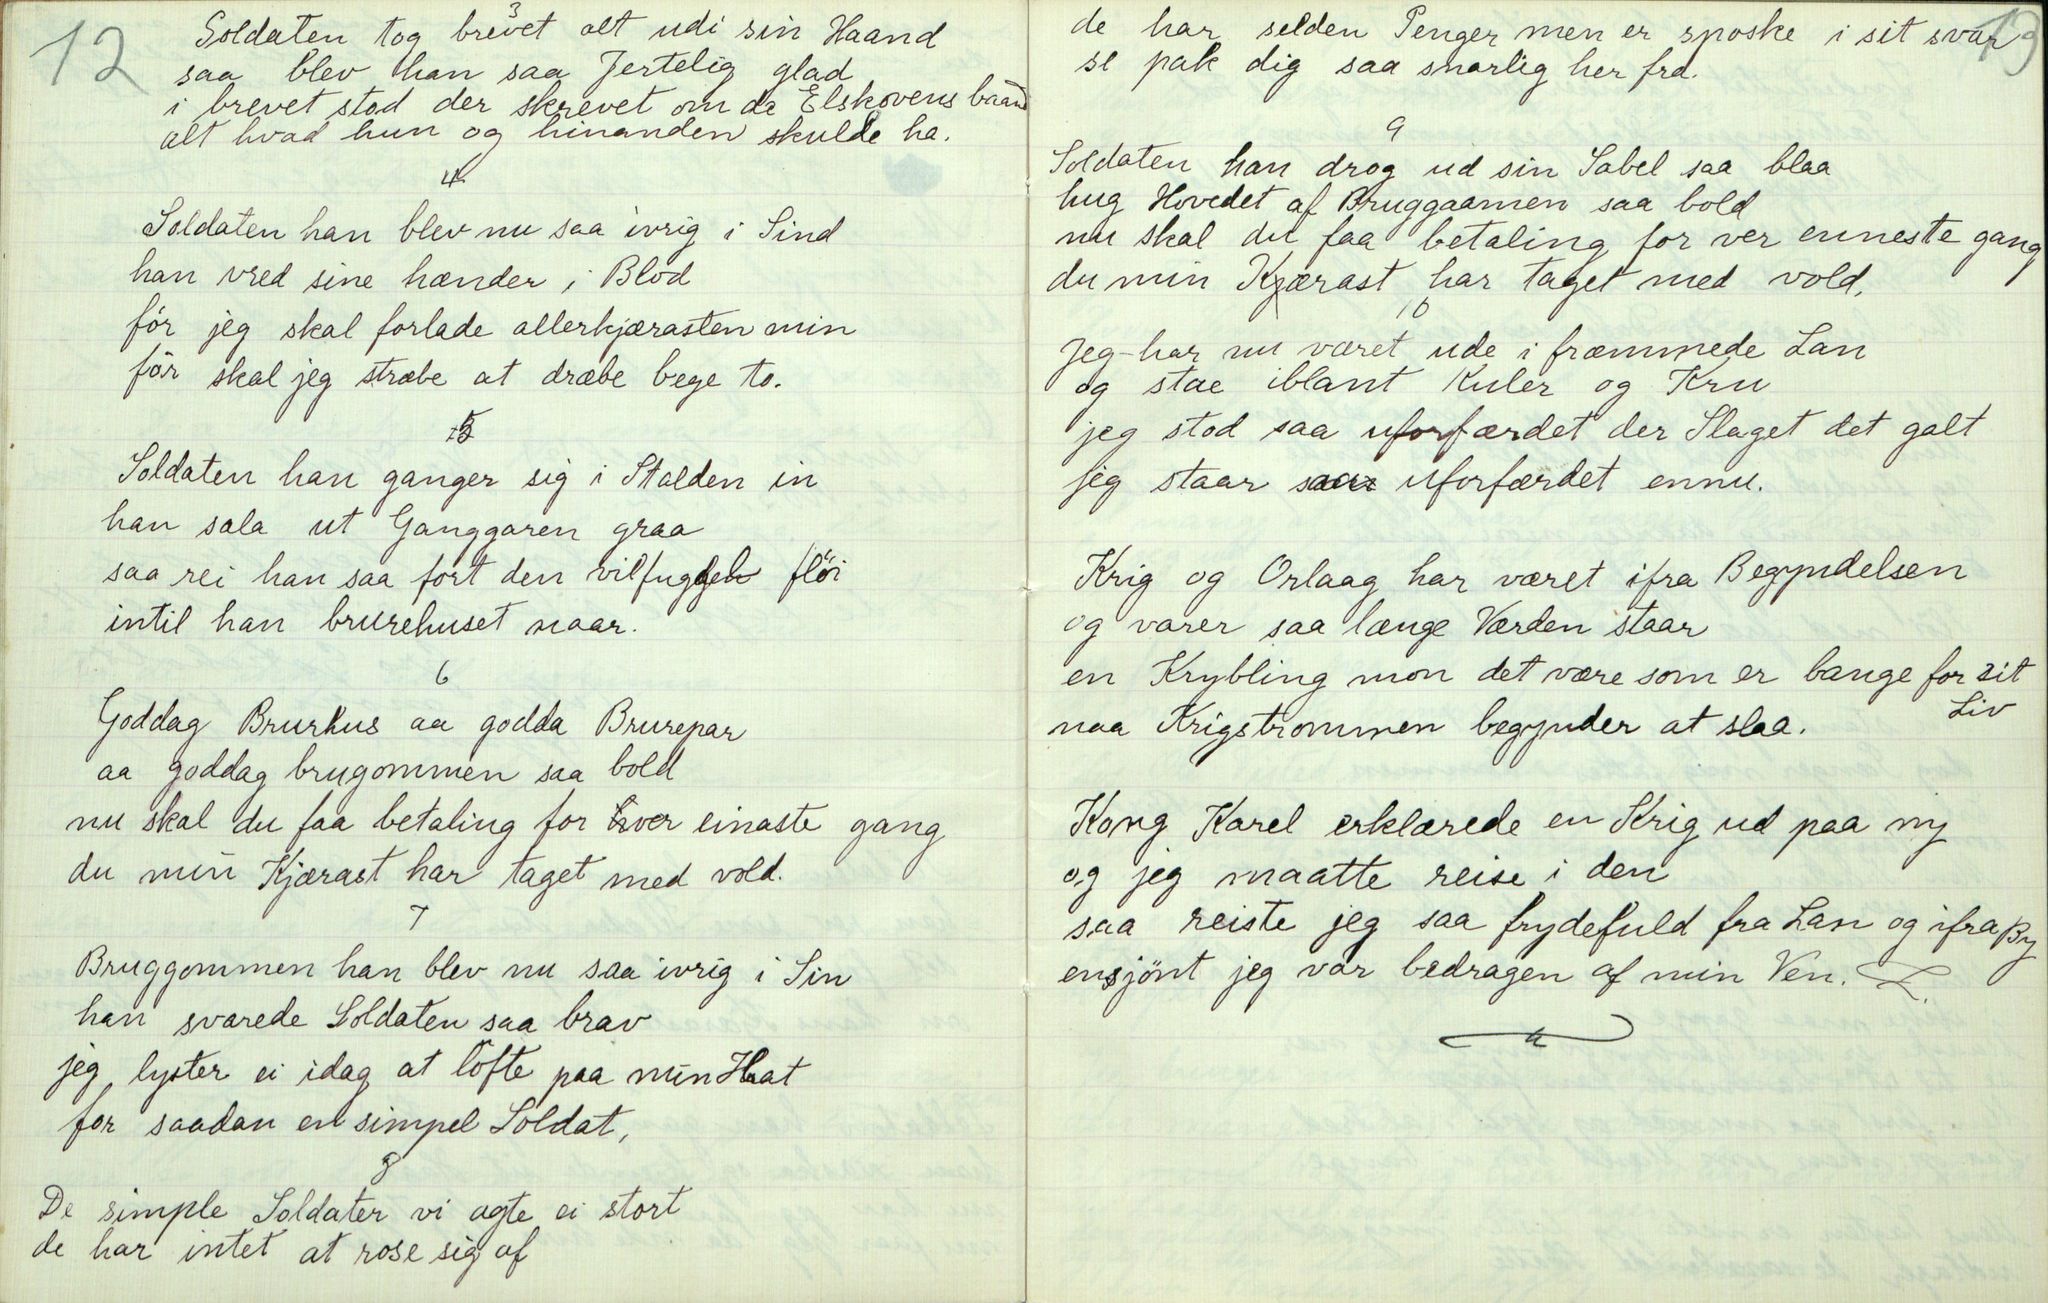 12
3
Soldaten tog brevet alt udi sin Haand
saa blev han saa Jertelig glad
i brevet stod der skrevet om de Elskovens baand
alt hvad hun og hinanden skulde ha.
4
Soldaten han blev nu saa ivrig i Sind
han vred sine hænder i Blod
för jeg skal forlade allerkjærasten min
för skal jeg stræbe at dræbe bege to.
5
Soldaten han ganger sig i Stalden in
han sala ut Ganggaren graa
saa rei han saa fort den vilfuggel flöi
intil han brurehuset naar.
6
Goddag Brurhus aa godda Brurepar
aa goddag brugommen saa bold
nu skal du faa betaling for hver einaste gang
du min Kjærast har taget med vold.
7
Bruggommen han blev nu saa ivrig i Sin
han svarede Soldaten saa brav
jeg lyster ei idag at löfte paa min Hat
for saadan en simpel Soldat,
8
De simple Soldater vi agte ei stort
de har intet at rose sig af
13
de har selden Penger men er sposke i sit svar
se pak dig saa snarlig her fra.
9
Soldaten han drog ud sin Sabel saa blaa
hug Hovedet af Bruggaamen saa bold
nu skal du faa betaling for ver enneste gang
du min Kjærast har taget med vold,
10
Jeg har nu været ude i fræmmede Lan
og stae iblant Kuler og Kru
jeg stod saa uforfærdet der Slaget det galt
jeg staar saa uforfærdet ennu.
Krig og Orlaag har været ifra Begyndelsen
og varer saa længe Værden staar
en Krybling mon det være som er bange for sit
Liv
naa Krigstrommen begynder at slaa.
Kong Karel erklærede en Krig ud paa ny
og jeg maatte reise i den
saa reiste jeg saa frydefuld fra Lan og ifra By
ensjönt jeg var bedragen af min Ven.